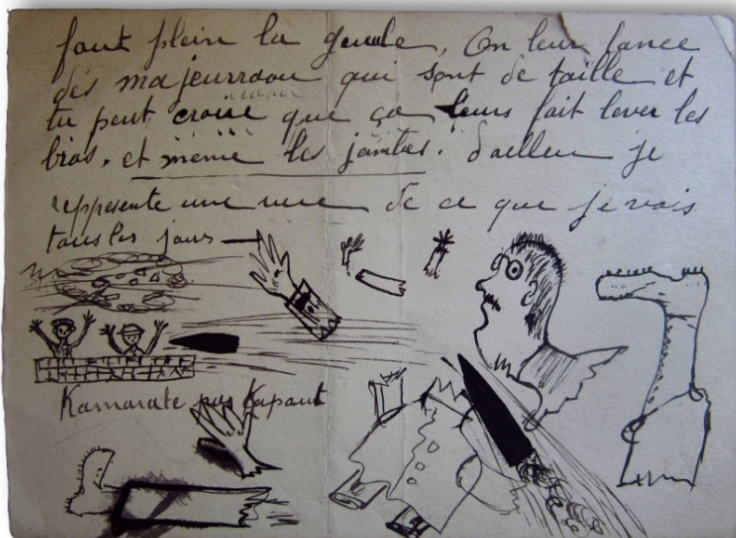 font plein la gueule, On leur lance
des majeurraou qui sont de taille et
tu peut croire que ça leurs fait lever les
bras. et même les jambes. d'ailleur je
represente une vue de ce que je vais
tous les jours
Kamarate pas Kapaut